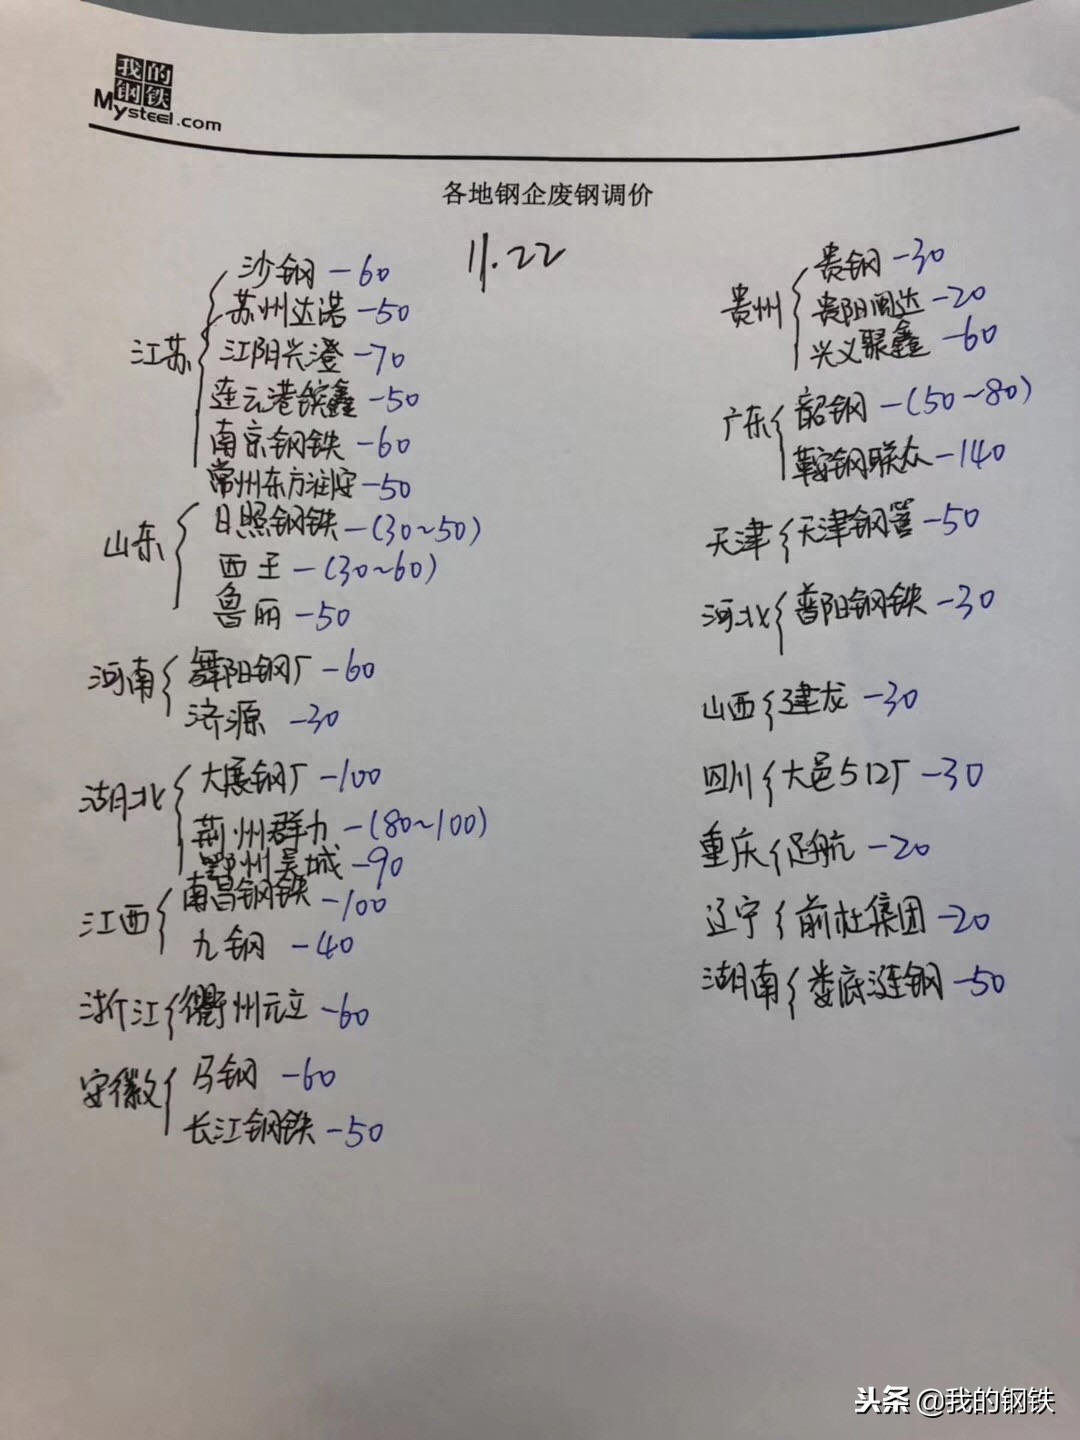 我的
钢铁
Mysteel.com
各地钢企废钢调价
11.22
江苏
沙钢 -60
苏州达诺 -50
江阳兴澄 -70
连云港镔鑫 -50
南京钢铁 -60
常州东方润安 -50
山东
日照钢铁 -(30~50)
西王 -(30~60)
鲁丽 -50
河南
舞阳钢厂 -60
济源 -30
湖北
大展钢厂 -100
荆州群力 -(80~100)
鄂州吴城 -90
江西
南昌钢铁 -100
九钢 -40
浙江
衢州元立 -60
安徽
马钢 -60
长江钢铁 -50
贵州
贵钢 -30
贵阳闽达 -20
兴义聚鑫 -60
广东
韶钢 -(50~80)
鞍钢联众 -140
天津
天津钢管 -50
河北
普阳钢铁 -30
山西
建龙 -30
四川
大邑512厂 -30
重庆
足航 -20
辽宁
前杜集团 -20
湖南
娄底涟钢 -50
头条 @我的钢铁